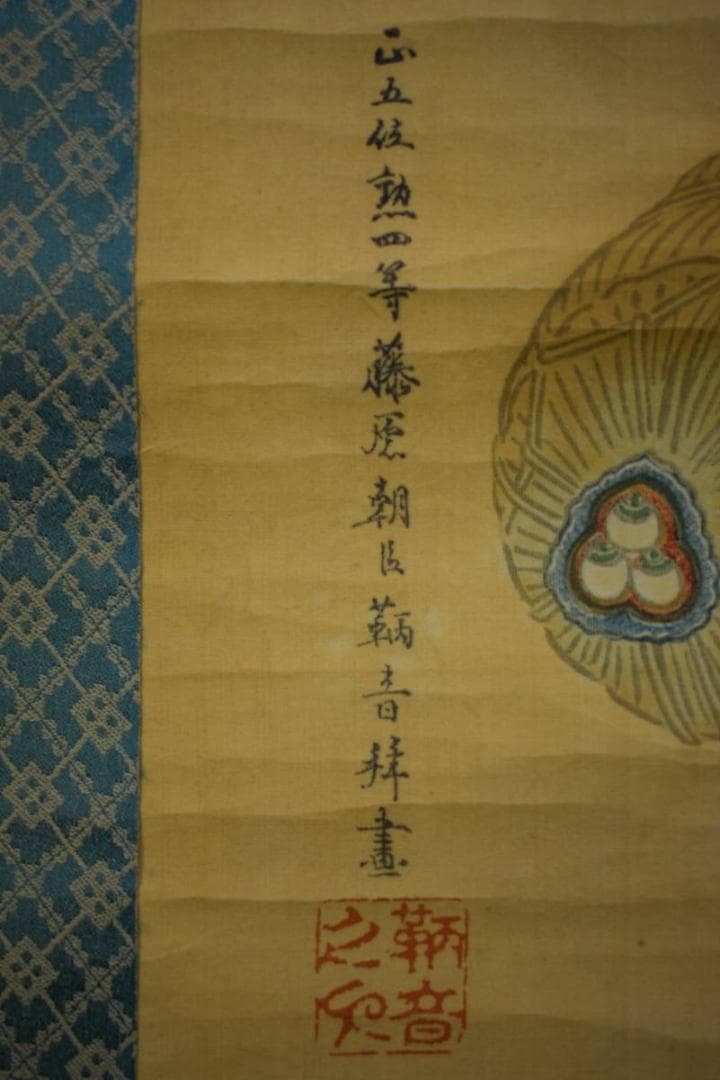 正五位勲四等藤原朝臣鞆音拜畫
鞆音
之印